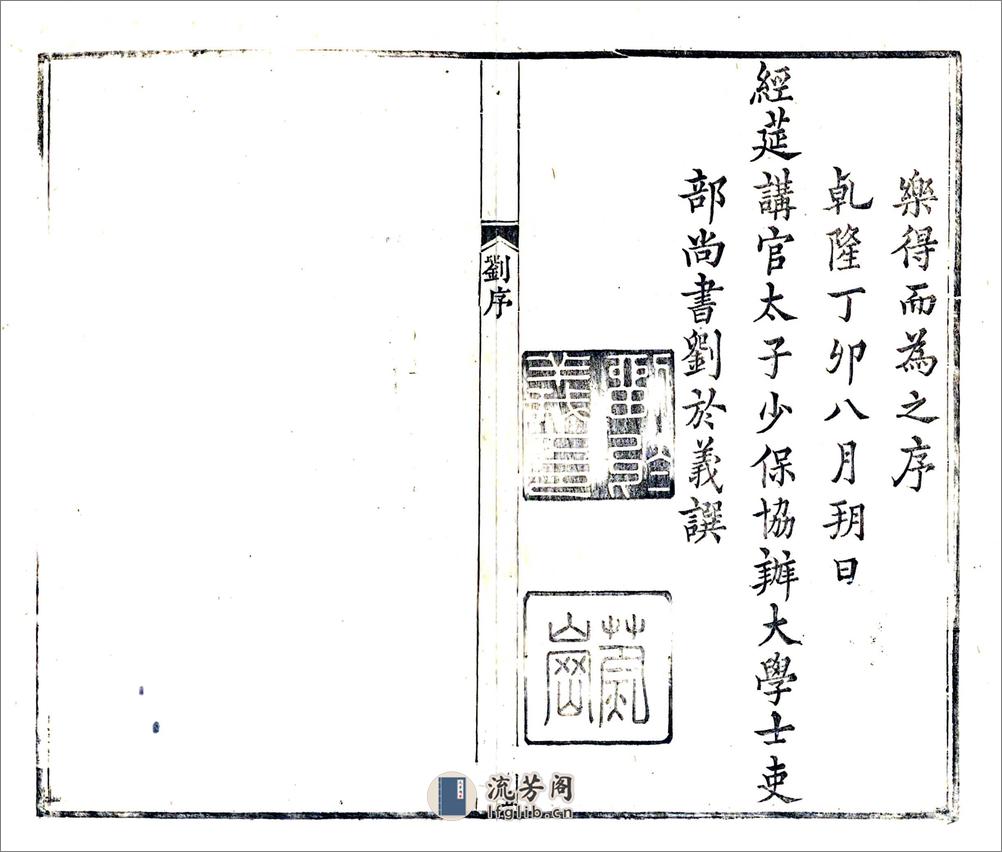 樂得而為之序
乹隆丁卯八月朔日
經莚講官太子少保協辦大學士吏
部尚書劉於義譔
劉序
流芳阁
lfglib.cn